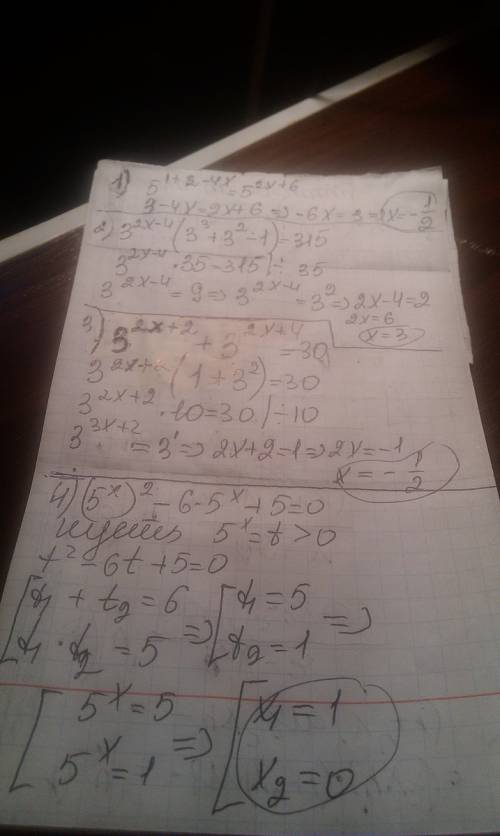 1) 5^{1+2-4x}=5^{2x+6}
3-4x=2x+6=>-6x=3=>x=-\frac{1}{2}
2) 3^{2x-4}(3^3+3^2-1)=315
3^{2x-4}·35=315|÷35
3^{2x-4}=9=>3^{2x-4}=3^2=>2x-4=2
2x=6
x=3
3) 3^{2x+2}+3^{2x+4}=30
3^{2x+2}(1+3^2)=30
3^{2x+2}·10=30|÷10
3^{3x+2}=3^1=>2x+2=1=>2x=-1
x=-\frac{1}{2}
4) (5^x)^2-6·5^x+5=0
пусть 5^x=t>0
t^2-6t+5=0
[t1+t2=6 [t1=5
[t1·t2=5 => [t2=1 =>
[5^x=5 [x1=1
[5^x=1 => [x2=0